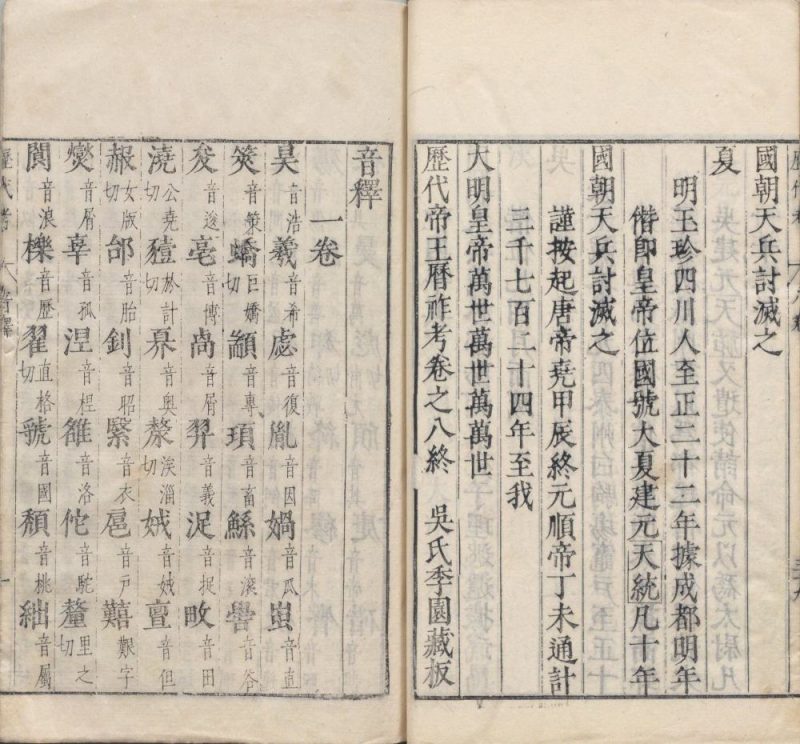 國朝天兵討滅之
夏
明玉珍四川人至正二十二年據成都明年
僭即皇帝位國號大夏建元天統凡十年
國朝天兵討滅之
謹按起唐帝堯甲辰終元順帝丁未通計
三千七百二十四年至我
大明皇帝萬世萬世萬萬世
歷代帝王曆祚考卷之八終 吳氏季園藏板
音釋
一卷
昊音浩羲音希虙音復胤音因媧音瓜蚩音直
筴音策蟜巨嬌切顓音專頊音畜鯀音滾嚳音谷
夋音逡亳音博卨音屑羿音義浞音捉畋音田
澆公堯切豷於計切奡音奥漦涘淄切娥音娥亶音但
赧女版切邰音胎釗音昭緊音衣扈音戸囏艱字
燮音屑辜音孤涅音桯雒音洛佗音駝釐里之切
閬音浪櫟音歷翟直格切虢音國頽音桃絀音屬